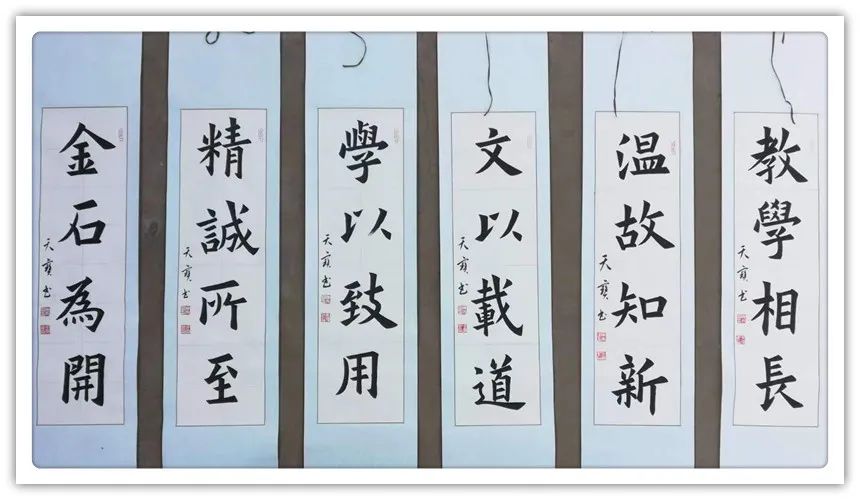 教學相長
天寶书
温故知新
天寶书
文以載道
天寶书
學以致用
天寶书
精誠所至
天寶书
金石為開
天寶书